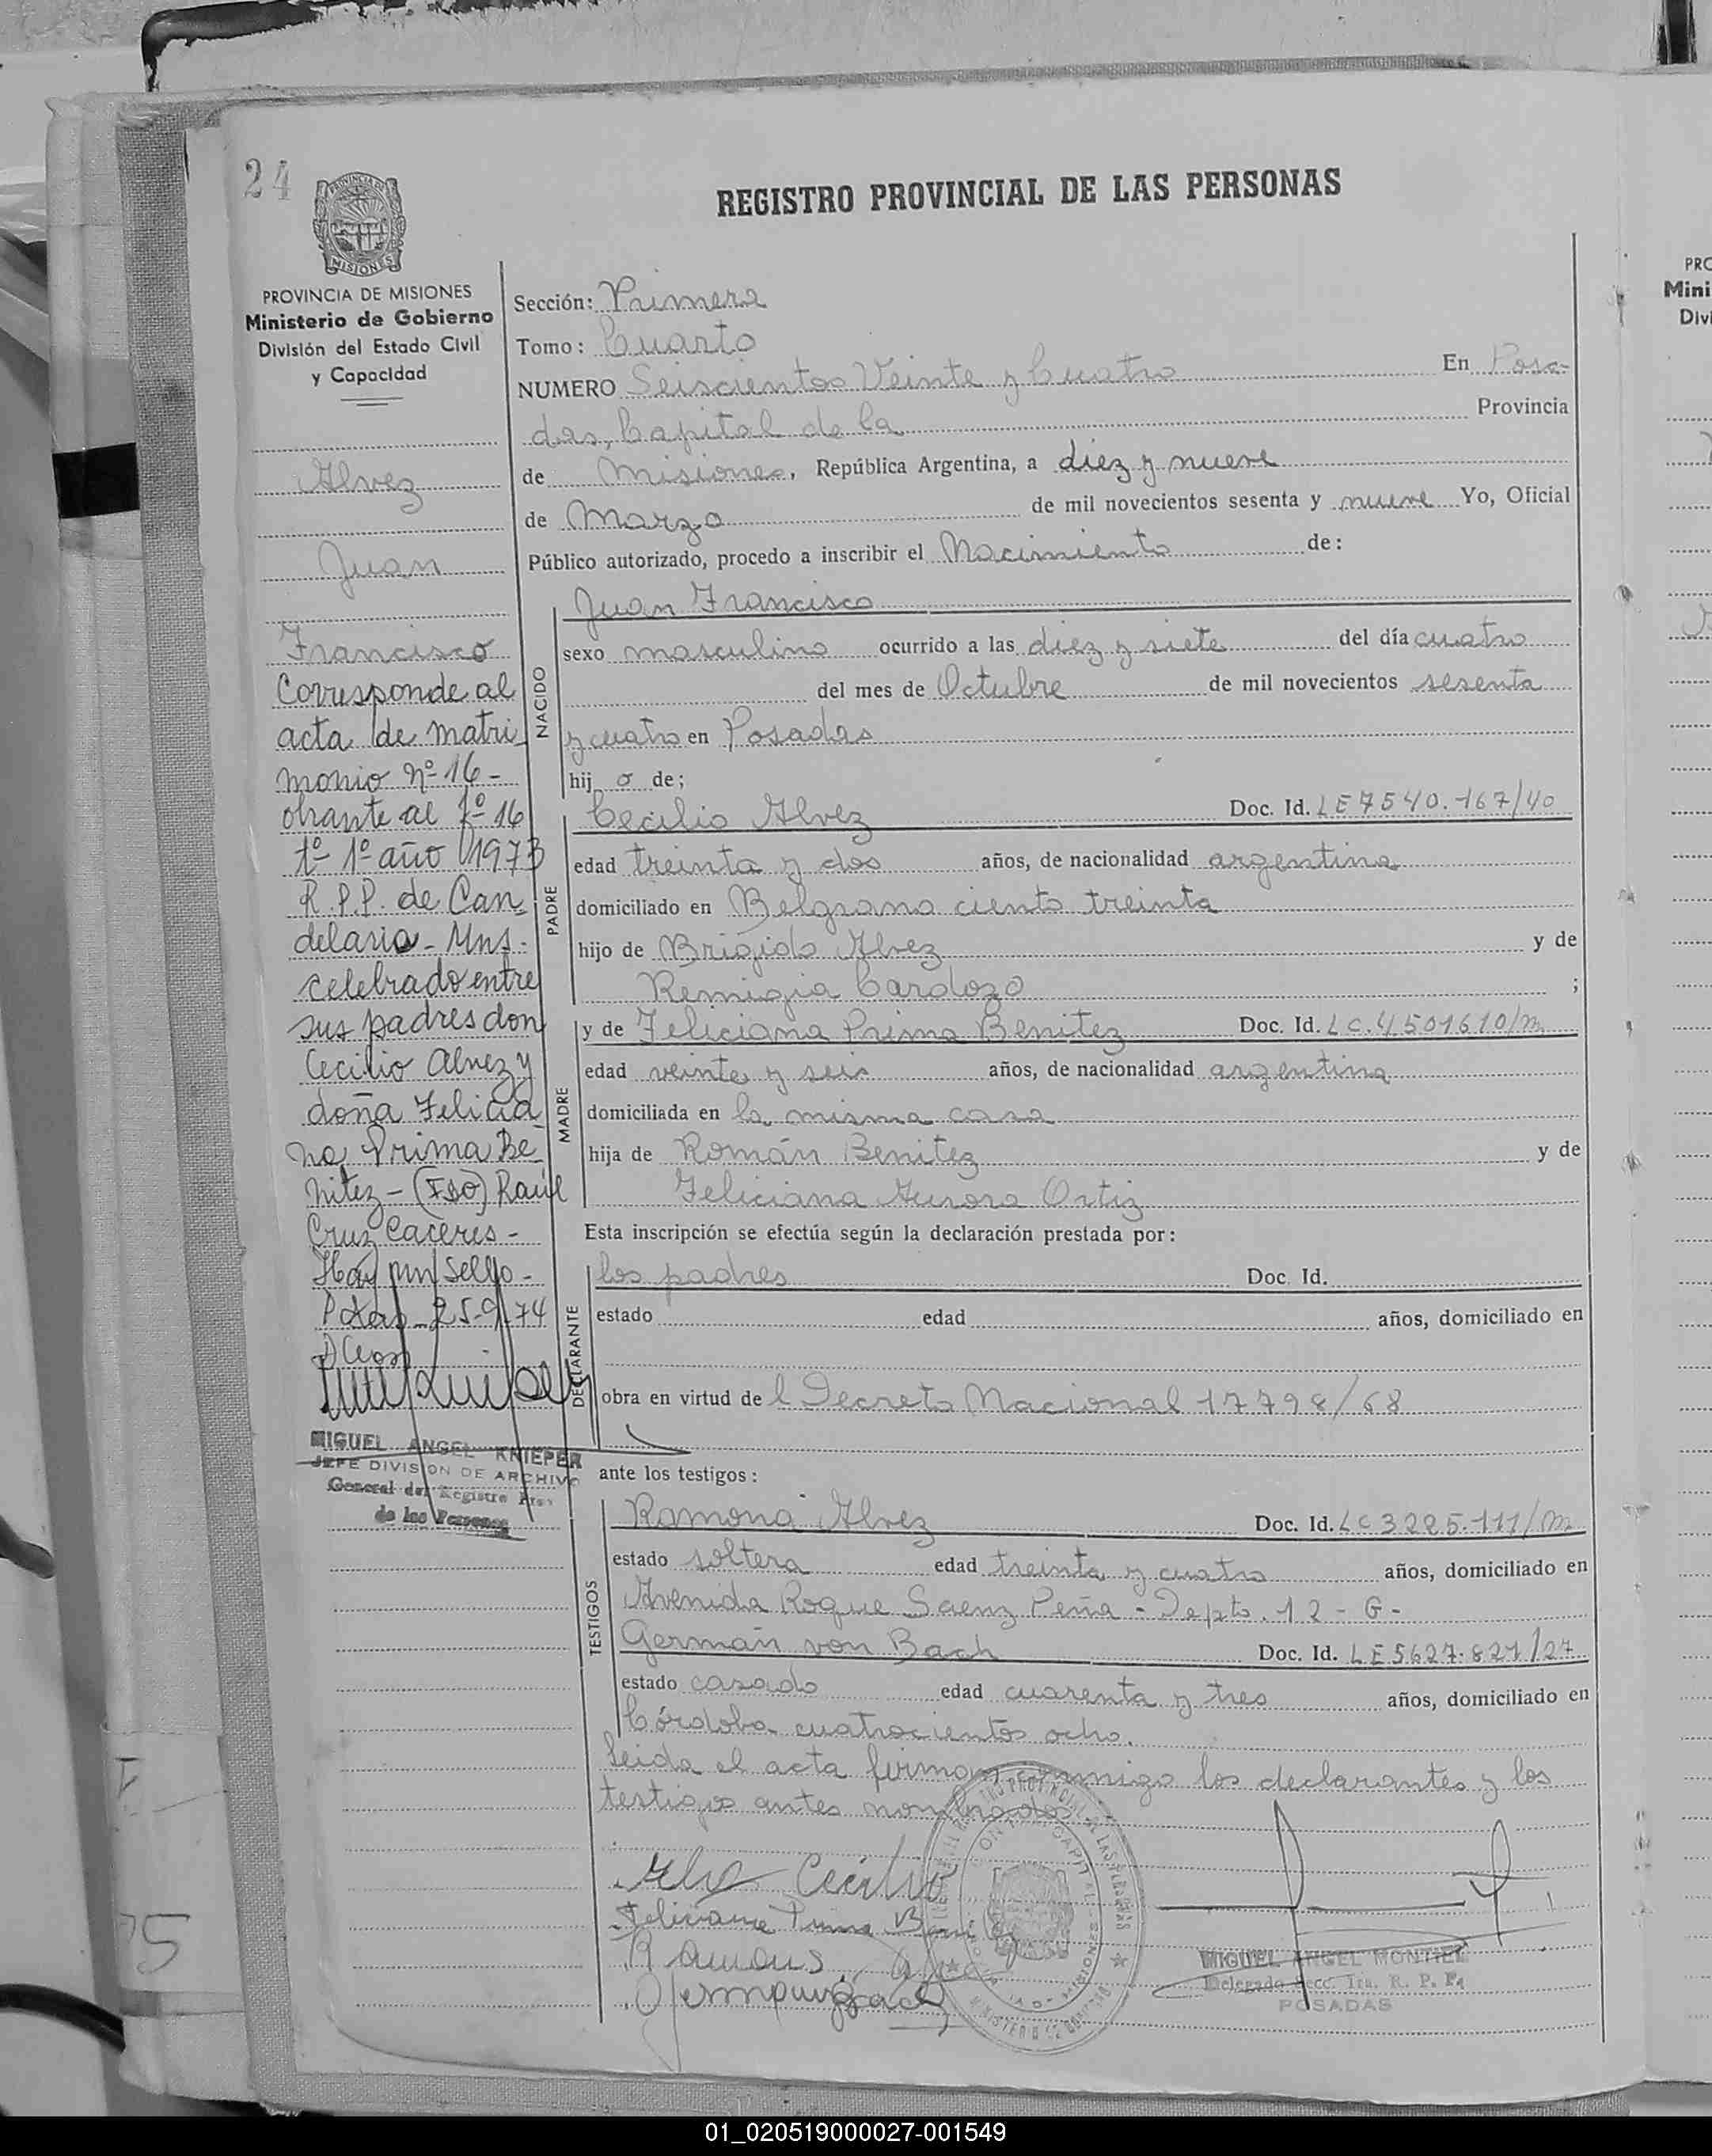 24
REGISTRO PROVINCIAL DE LAS PERSONAS
PROVINCIA DE
MISIONES
PROVINCIA DE MISIONES
Ministerio de Gobierno
División del Estado Civil
y Capacidad
Alvez
Juan
Francisco
Corresponde al
acta de matri
monio nº 16 -
obrante al fº 16
tº 1º año 1973
R.P.P. de Can
delaria - Mns.
celebrado entre
sus padres don
Cecilio Alvez y
doña Felicia
na Prima Be
nitez - (Fdo) Raúl
Cruz Caceres -
Hay un Sello -
Pdas - 25-9-74
MIGUEL ANGEL KNIEPER
JEFE DIVISION DE ARCHIVO
General del Registro Prov
de las Personas
Sección: Primera
Tomo: Cuarto
NUMERO Seiscientos Veinte y Cuatro En Posa-
das, Capital de la Provincia
de Misiones, República Argentina, a diez y nueve
de Marzo de mil novecientos sesenta y nueve Yo, Oficial
Público autorizado, procedo a inscribir el Nacimiento de:
NACIDO
Juan Francisco
sexo masculino ocurrido a las diez y siete del día cuatro
del mes de Octubre de mil novecientos sesenta
y cuatro en Posadas
hij o de;
PADRE
Cecilio Alvez Doc. Id. LE 7540.167/40
edad treinta y dos años, de nacionalidad argentina
domiciliado en Belgrano ciento treinta
hijo de Brígido Alvez y de
Remigia Cardozo ;
MADRE
y de Feliciana Prima Benitez Doc. Id. LC.4501610/m
edad veinte y seis años, de nacionalidad argentina
domiciliada en la misma casa
hija de Román Benitez y de
Feliciana Aurora Ortiz
Esta inscripción se efectúa según la declaración prestada por:
DECLARANTE
los padres Doc. Id.
estado edad años, domiciliado en
obra en virtud de l Decreto Nacional 17798/68
ante los testigos:
TESTIGOS
Ramona Alvez Doc. Id. LC 3225.111/m
estado soltera edad treinta y cuatro años, domiciliado en
Avenida Roque Saenz Peña - Depto. 12 - G -
Germán von Bach Doc. Id. LE 5627.821/27
estado casado edad cuarenta y tres años, domiciliado en
Córdoba cuatrocientos ocho.
Leida el acta firman conmigo los declarantes y los
testigos antes nombrados
Cecilio
Feliciana Prima
MIGUEL ANGEL MONTIEL
Delegado Secc. 1ra. R. P. P.
POSADAS
PRO
Mini
Divi
01_020519000027-001549